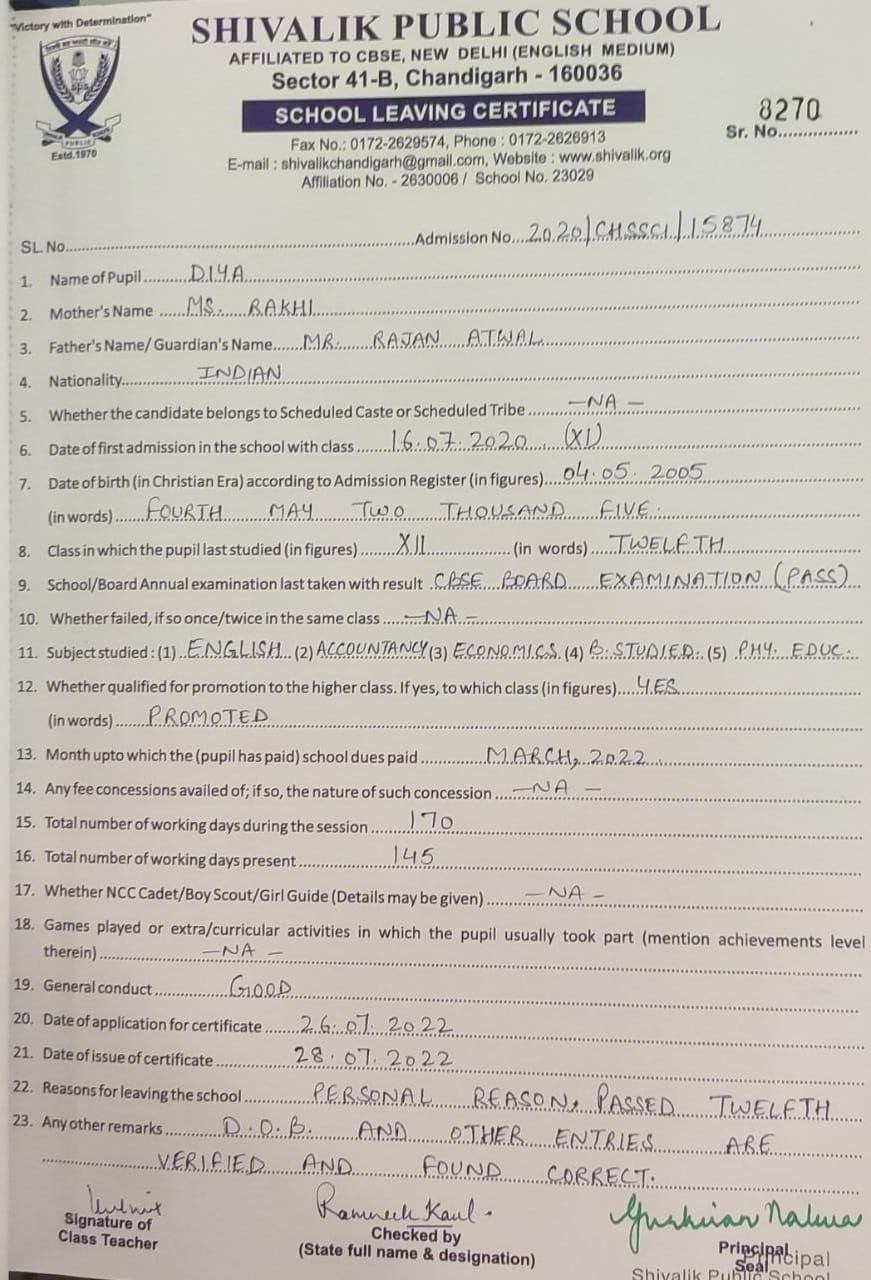 "Victory with Determination"
SHIVALIK PUBLIC SCHOOL
AFFILIATED TO CBSE, NEW DELHI (ENGLISH MEDIUM)
Sector 41-B, Chandigarh - 160036
SCHOOL LEAVING CERTIFICATE
8270
Sr. No...............
Fax No.: 0172-2629574, Phone : 0172-2626913
E-mail : shivalikchandigarh@gmail.com, Website : www.shivalik.org
Affiliation No. - 2630006 / School No. 23029
PUBLIC
Estd.1970
SL. No............Admission No...2020/CHSSCI/15874
1. Name of Pupil.........DIYA
2. Mother's Name ......MS. RAKHI
3. Father's Name/ Guardian's Name......MR. RAJAN ATWAL
4. Nationality............INDIAN
5. Whether the candidate belongs to Scheduled Caste or Scheduled Tribe ........—NA—
6. Date of first admission in the school with class ......16.07.2020 (XI)
7. Date of birth (in Christian Era) according to Admission Register (in figures)....04.05.2005
(in words)......FOURTH MAY TWO THOUSAND FIVE.
8. Class in which the pupil last studied (in figures) .......XII............ (in words) ....TWELFTH
9. School/Board Annual examination last taken with result .CBSE BOARD EXAMINATION (PASS)
10. Whether failed, if so once/twice in the same class .....—NA—
11. Subject studied : (1) ..ENGLISH.. (2) ACCOUNTANCY (3) ECONOMICS. (4) B. STUDIED. (5) PHY. EDUC.
12. Whether qualified for promotion to the higher class. If yes, to which class (in figures)....YES
(in words).......PROMOTED
13. Month upto which the (pupil has paid) school dues paid ............MARCH, 2022
14. Any fee concessions availed of; if so, the nature of such concession ....—NA—
15. Total number of working days during the session .......170
16. Total number of working days present ............145
17. Whether NCC Cadet/Boy Scout/Girl Guide (Details may be given) .......—NA—
18. Games played or extra/curricular activities in which the pupil usually took part (mention achievements level
therein)............—NA—
19. General conduct.............GOOD
20. Date of application for certificate .......26.07.2022
21. Date of issue of certificate ............28.07.2022
22. Reasons for leaving the school ...........PERSONAL REASON, PASSED TWELFTH
23. Any other remarks ..........D.O.B. AND OTHER ENTRIES ARE
VERIFIED AND FOUND CORRECT.
Signature of
Class Teacher
Ramneek Kaul.
Checked by
(State full name & designation)
Principal
Seal
Principal
Shivalik Public School